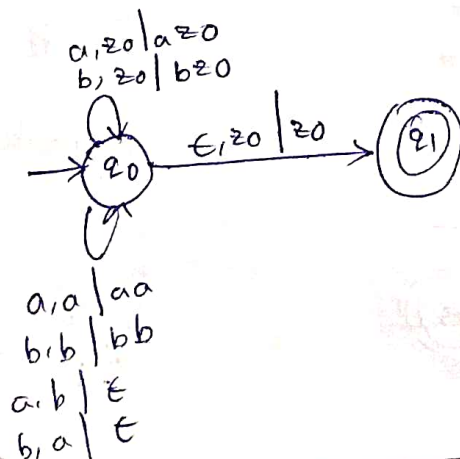 a,z0|az0
b,z0|bz0
q0
ε,z0|z0
q1
a,a|aa
b,b|bb
a,b|ε
b,a|ε